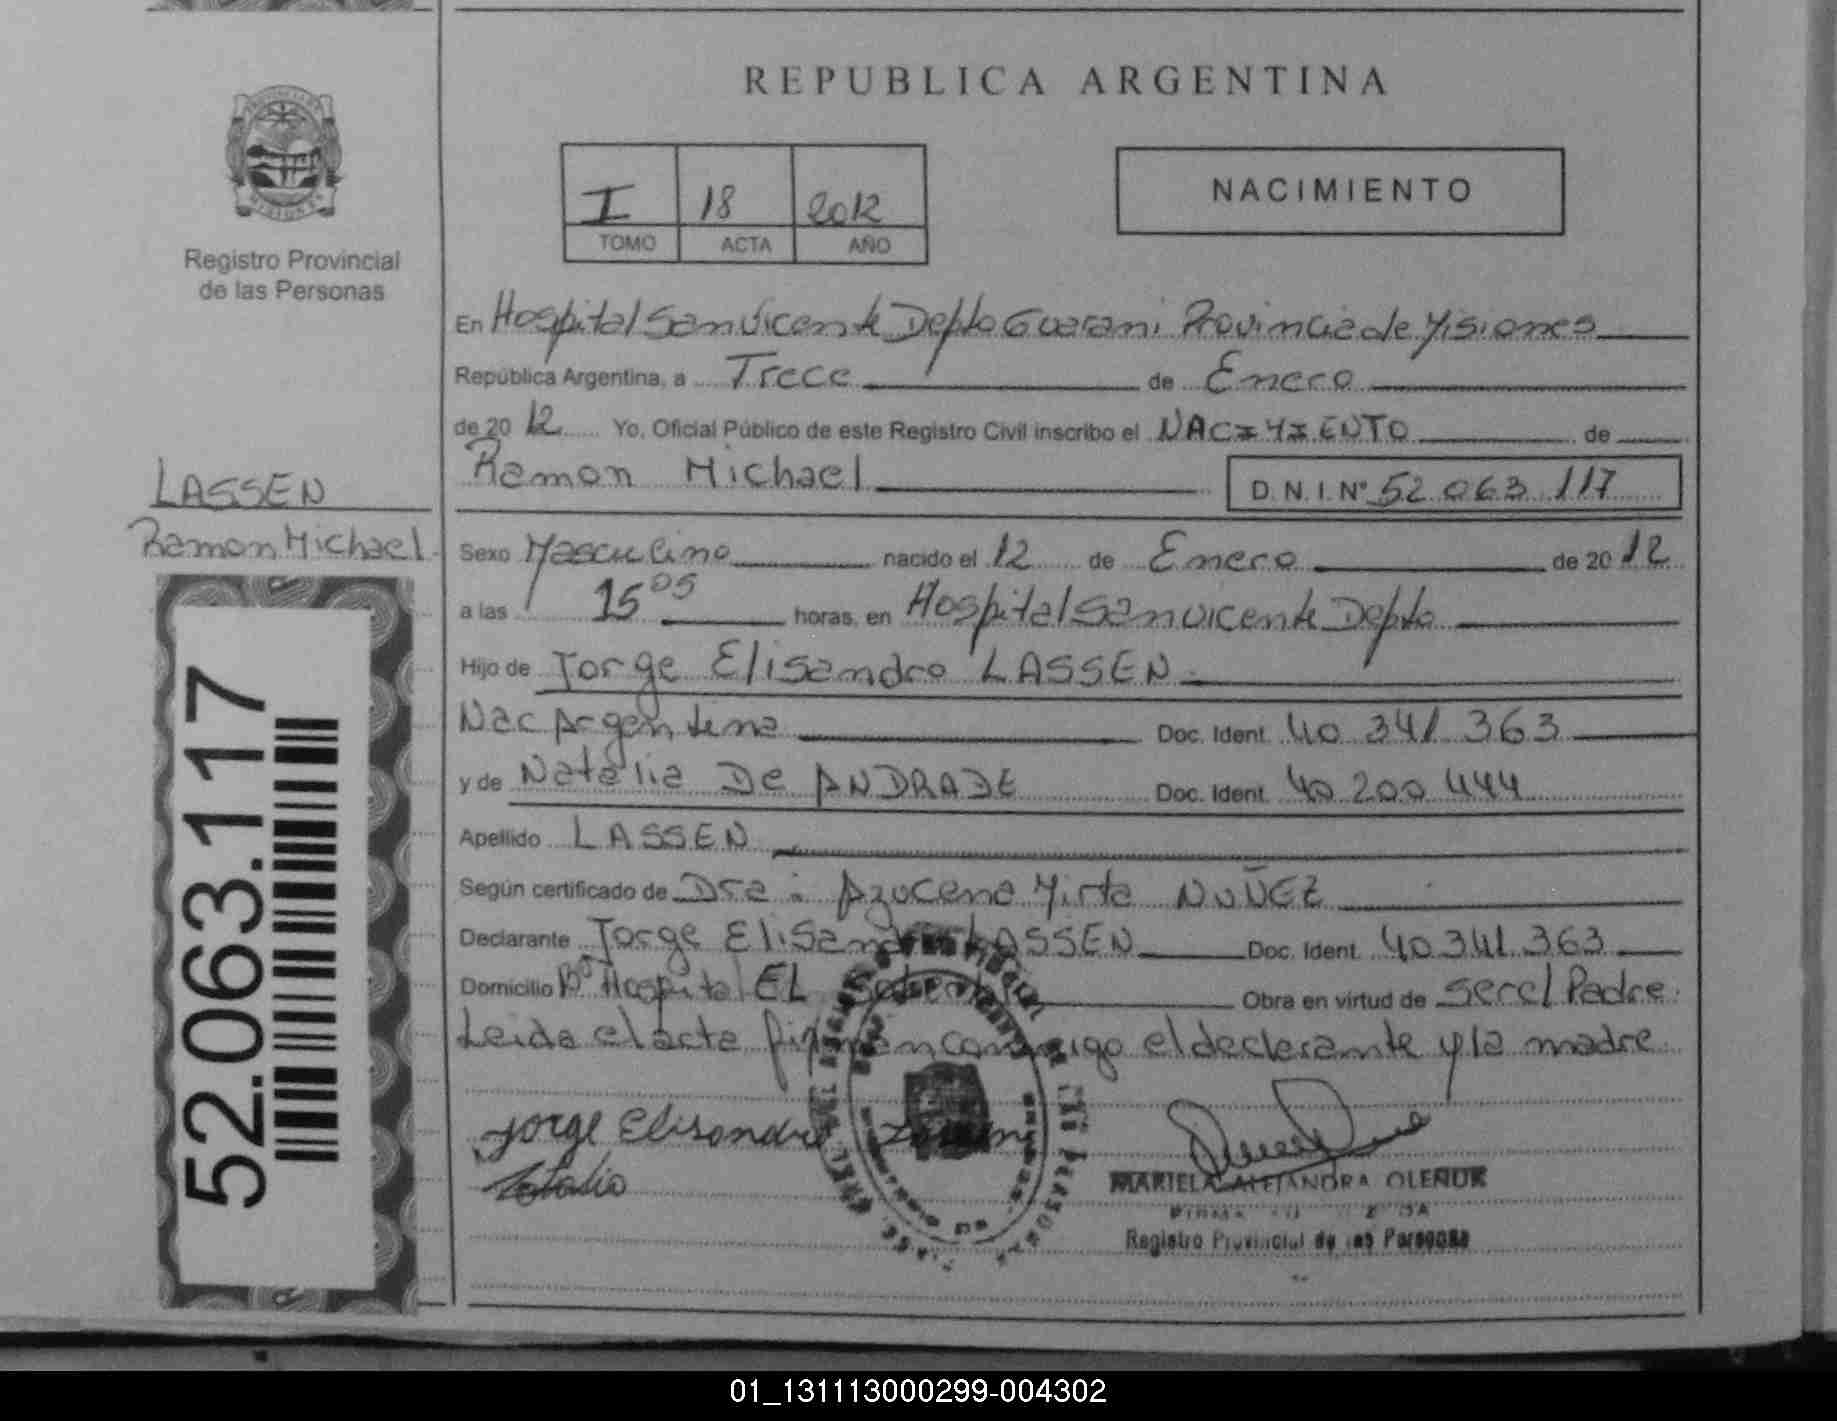 REPUBLICA ARGENTINA
PROVINCIA DE
MISIONES
Registro Provincial
de las Personas
I 18 2012
TOMO ACTA AÑO
NACIMIENTO
En Hospital San Vicente Depto Guarani Provincia de Misiones
República Argentina, a Trece de Enero
de 20 12 Yo, Oficial Público de este Registro Civil inscribo el NACIMIENTO de
Ramon Michael D.N.I.Nº 52 063 117
LASSEN
Ramon Michael
Sexo Masculino nacido el 12 de Enero de 20 12
a las 15 05 horas, en Hospital San Vicente Depto
Hijo de Jorge Elisandro LASSEN
Nac Argentina Doc. Ident. 40 341 363
y de Natalia De ANDRADE Doc. Ident. 40 200 444
Apellido LASSEN
Según certificado de Dra: Azucena Mirta NUÑEZ
Declarante Jorge Elisandro LASSEN Doc. Ident. 40 341 363
Domicilio Bº Hospital EL Obra en virtud de ser el Padre
Leida el acta firman conmigo el declarante y la madre
Jorge Elisandro Lassen
Natalia
MARIELA ALEJANDRA OLEÑUK
Registro Provincial de las Personas
52.063.117
01_131113000299-004302